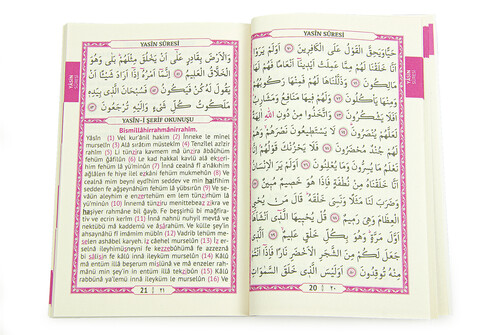 YASİN SÛRESİ
حَيًّا وَيَحِقَّ الْقَوْلُ عَلَى الْكَافِرِينَ ﴿٧٠﴾ اَوَلَمْ يَرَوْا
اَنَّا خَلَقْنَا لَهُمْ مِمَّا عَمِلَتْ اَيْدِينَا اَنْعَامًا فَهُمْ لَهَا
مَالِكُونَ ﴿٧١﴾ وَذَلَّلْنَاهَا لَهُمْ فَمِنْهَا رَكُوبُهُمْ
وَمِنْهَا يَاْكُلُونَ ﴿٧٢﴾ وَلَهُمْ فِيهَا مَنَافِعُ وَمَشَارِبُ
اَفَلَا يَشْكُرُونَ ﴿٧٣﴾ وَاتَّخَذُوا مِنْ دُونِ اللهِ اٰلِهَةً
لَعَلَّهُمْ يُنْصَرُونَ ﴿٧٤﴾ لَا يَسْتَطِيعُونَ نَصْرَهُمْ وَهُمْ
لَهُمْ جُنْدٌ مُحْضَرُونَ ﴿٧٥﴾ فَلَا يَحْزُنْكَ قَوْلُهُمْ اِنَّا
نَعْلَمُ مَا يُسِرُّونَ وَمَا يُعْلِنُونَ ﴿٧٦﴾ اَوَلَمْ يَرَ الْاِنْسَانُ
اَنَّا خَلَقْنَاهُ مِنْ نُطْفَةٍ فَاِذَا هُوَ خَصِيمٌ مُبِينٌ ﴿٧٧﴾
وَضَرَبَ لَنَا مَثَلًا وَنَسِيَ خَلْقَهُ قَالَ مَنْ يُحْيِي
الْعِظَامَ وَهِيَ رَمِيمٌ ﴿٧٨﴾ قُلْ يُحْيِيهَا الَّذِي اَنْشَاَهَا
اَوَّلَ مَرَّةٍ وَهُوَ بِكُلِّ خَلْقٍ عَلِيمٌ ﴿٧٩﴾ اَلَّذِي
جَعَلَ لَكُمْ مِنَ الشَّجَرِ الْاَخْضَرِ نَارًا فَاِذَا اَنْتُمْ
مِنْهُ تُوقِدُونَ ﴿٨٠﴾ اَوَلَيْسَ الَّذِي خَلَقَ السَّمٰوَاتِ
20 ٢٠
YASİN SÛRESİ
YASİN
SÛRESİ
وَالْاَرْضَ بِقَادِرٍ عَلٰى اَنْ يَخْلُقَ مِثْلَهُمْ بَلٰى وَهُوَ
الْخَلَّاقُ الْعَلِيمُ ﴿٨١﴾ اِنَّمَا اَمْرُهُ اِذَا اَرَادَ شَيْئًا اَنْ
يَقُولَ لَهُ كُنْ فَيَكُونُ ﴿٨٢﴾ فَسُبْحَانَ الَّذِي بِيَدِهِ
مَلَكُوتُ كُلِّ شَيْءٍ وَاِلَيْهِ تُرْجَعُونَ ﴿٨٣﴾
YASÎN-İ ŞERİF OKUNUŞU
Bismillâhirrahmânirrahîm.
Yâsîn (1) Vel kur'ânil hakim (2) İnneke le minel
murselîn (3) Alâ sırâtım müstekîm (4) Tenzîlel azîzir
rahîm (5) Li tünzira kavmem mâ ünzira âbâühüm
fehüm ğâfilûn (6) Le kad hakkal kavlü alâ ekserihim
fehüm lâ yü'minûn (7) İnnâ cealnâ fî a'nâkıhim
ağlâlen fe hiye ilel ezkâni fehüm mukmehûn (8) Ve
cealnâ mim beyni eydîhim sedden ve min halfihim
sedden fe ağşeynâhüm fehüm lâ yübsirûn (9) Ve sevâün
aleyhim e enzertehüm em lem tünzirhüm lâ
yü'minûn (10) İnnemâ tünziru menittebeaz zikra ve
haşiyer rahmâne bil ğayb. Fe beşşirhü bi mağfirativ
ve ecrin kerîm (11) İnnâ nahnü nuhyil mevtâ ve
nektübü mâ kaddemû ve âsârahüm. Ve külle şey'in
ahsaynâhü fî imâmim mübîn (12) Vadrib lehüm meselen
ashâbel karyeh. İz câehel murselûn (13) İz erselnâ
ileyhimüsneyni fe kezzebûhümâ fe azzeznâ
bi sâlisin fe kâlû innâ ileyküm murselûn (14) Kâlû
mâ entüm illâ beşerum mislünâ ve mâ enzeler rahmânü
min şey'in in entüm illâ tekzibûn (15) Kâlû
rabbünâ ya'lemü innâ ileyküm le murselûn (16) Ve
21 ٢١